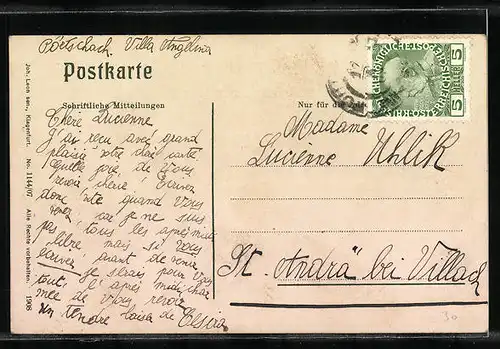 Pörtschach, Villa Angelina
Postkarte
Schriftliche Mitteilungen
Nur für die
Chère Lucienne
J'ai reçu avec grand
plaisir votre carte.
Quelle joie, de vous
revoir, chère! Ecrivez
donc vite quand vous
venez, car je ne suis
pas tous les après-midi
libre, mais si vous
écrivez avant de venir
je serais pour vous
tout l'après midi. char
mée de vous revoir
un tendre de
Madame
Lucienne Uhlik
St. Andrä" bei Villach
5 HELLER 5
Joh. Leon sen., Klagenfurt. No. 1144/07 Alle Rechte vorbehalten. 1908
30